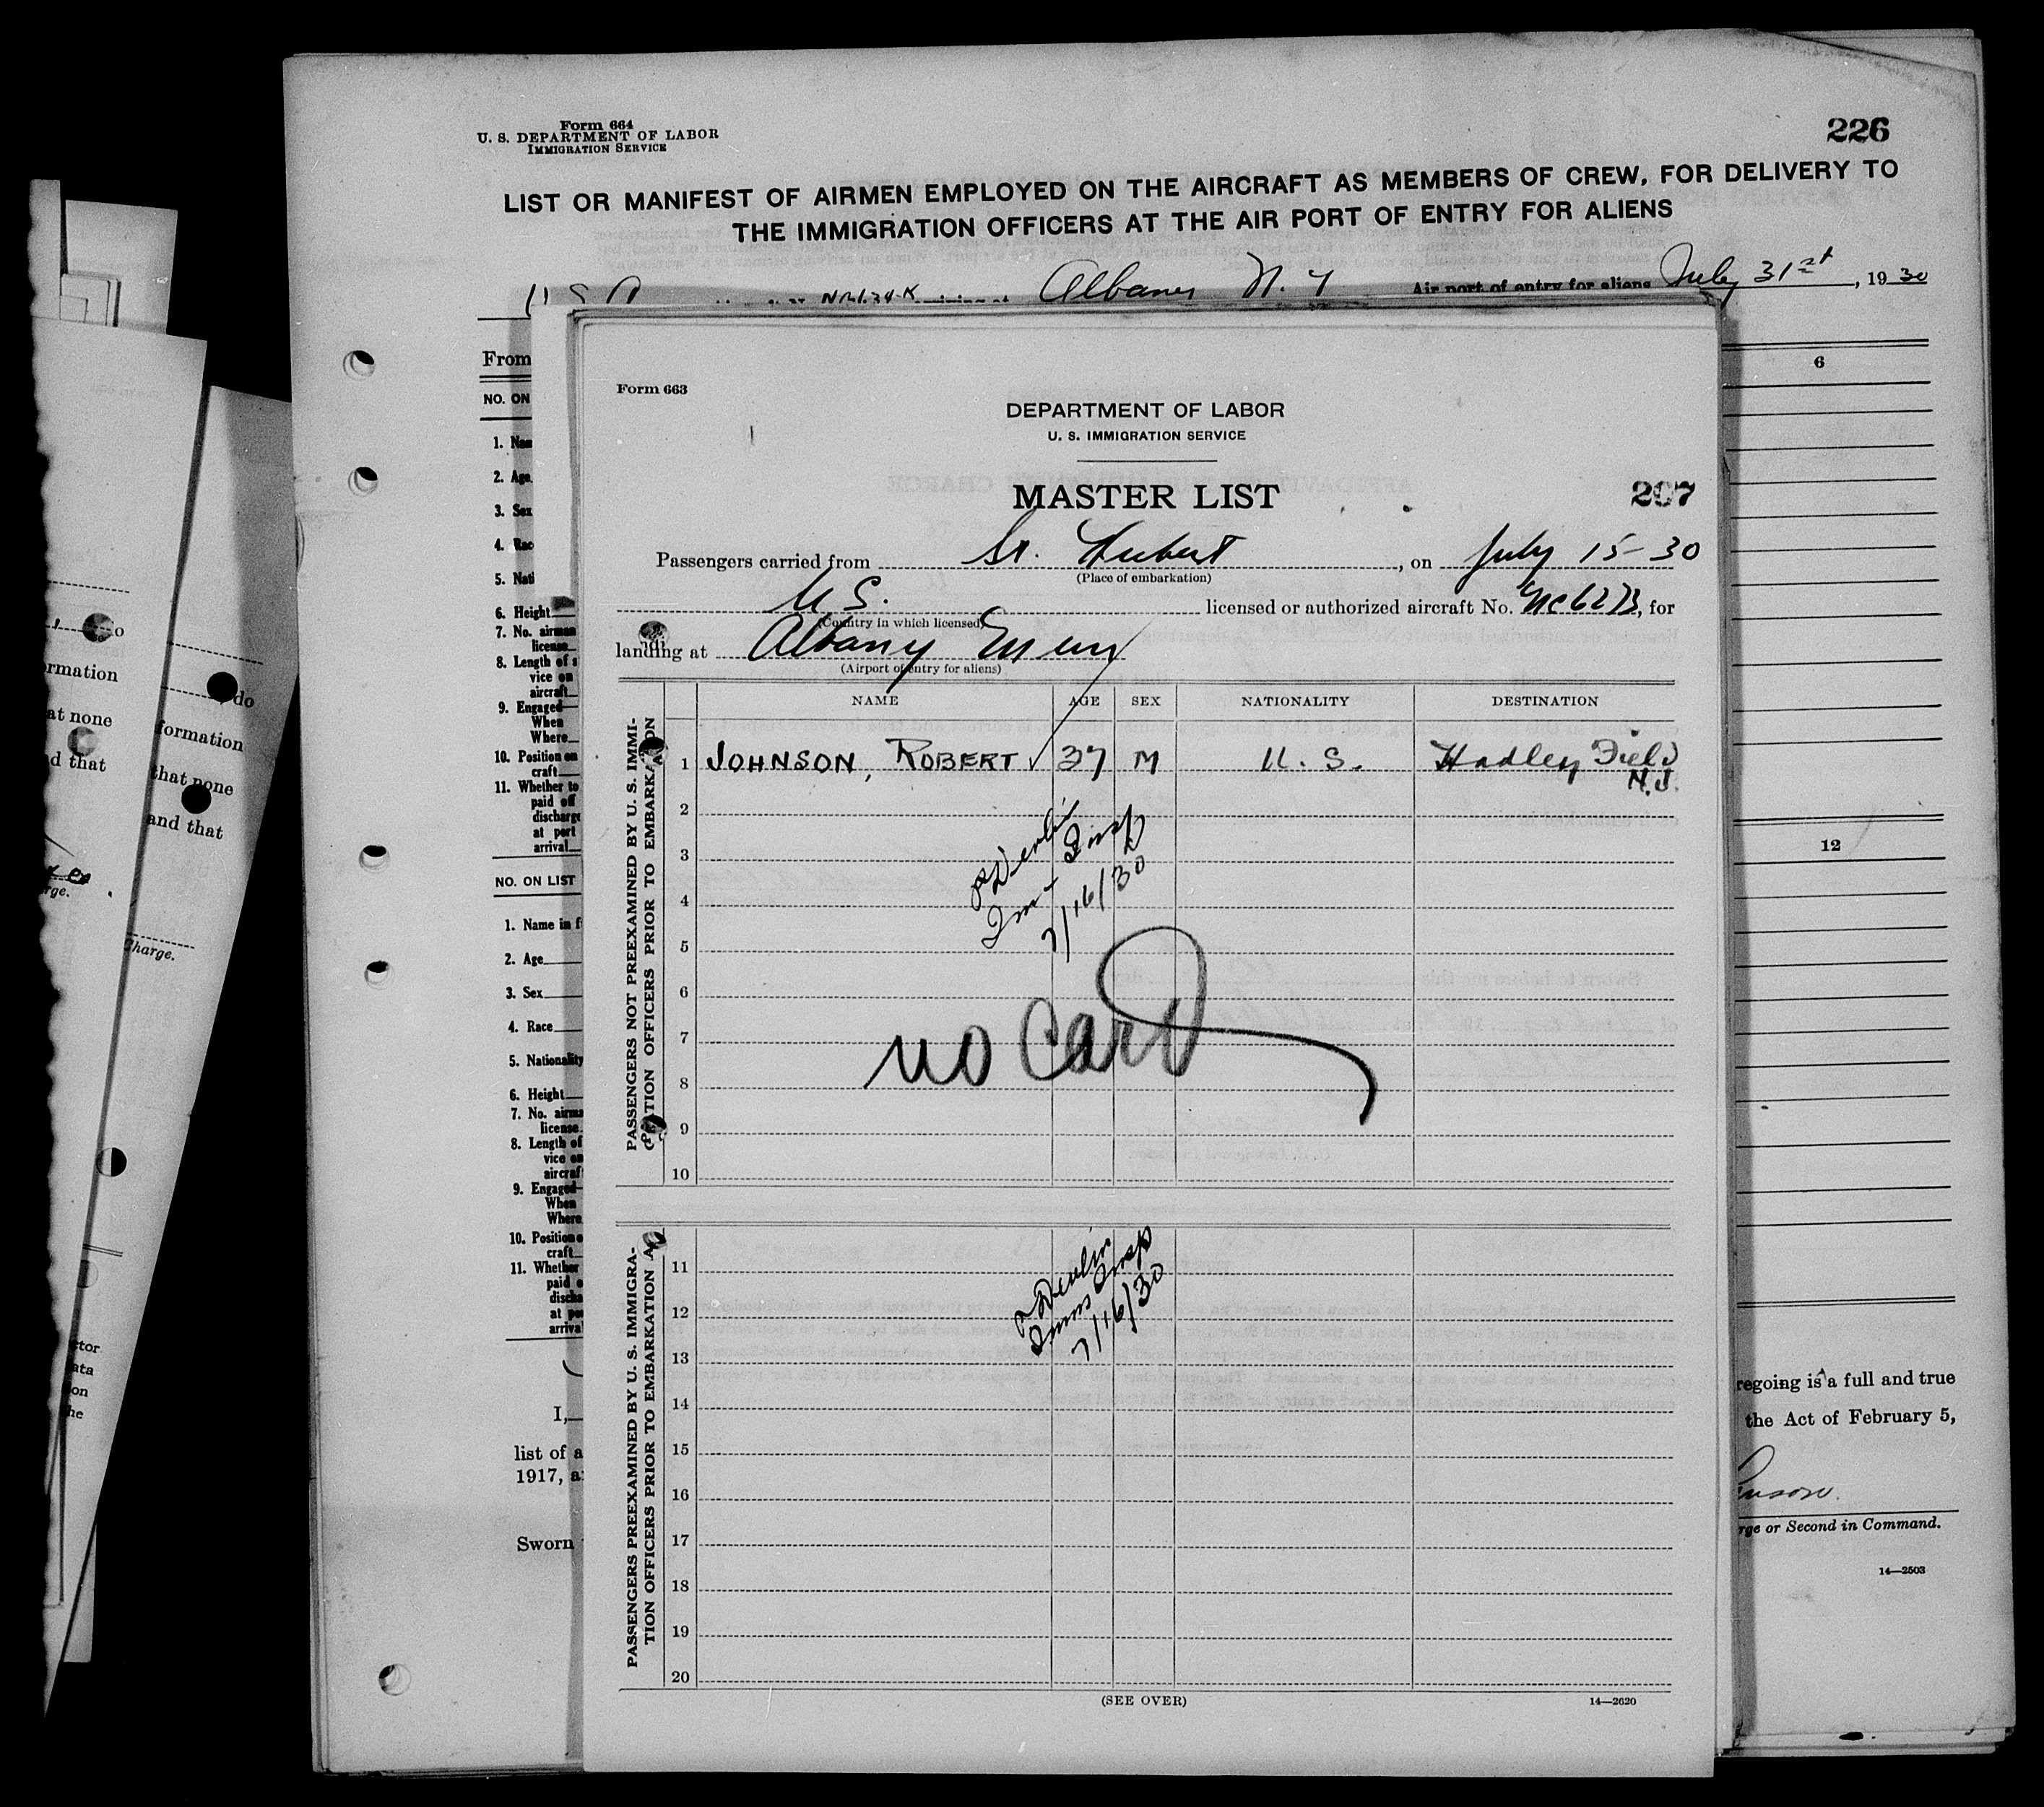 Form 664
U. S. DEPARTMENT OF LABOR
IMMIGRATION SERVICE
226
LIST OR MANIFEST OF AIRMEN EMPLOYED ON THE AIRCRAFT AS MEMBERS OF CREW, FOR DELIVERY TO
THE IMMIGRATION OFFICERS AT THE AIR PORT OF ENTRY FOR ALIENS
Albany N. Y Air port of entry for aliens July 31st, 1930
From
NO. ON
1. Nam
2. Age
3. Sex
4. Rac
5. Nati
6. Height
7. No. airman
license
8. Length of s
vice on
aircraft
9. Engaged
When
Where
10. Position on
craft
11. Whether to
paid off
discharge
at port
arrival
NO. ON LIST
1. Name in f
2. Age
3. Sex
4. Race
5. Nationality
6. Height
7. No. airma
license
8. Length of
vice on
aircraf
9. Engaged
When
Where
10. Position o
craft
11. Whether
paid o
discha
at po
arriva
I,
list of a
1917, a
Sworn
6
12
regoing is a full and true
the Act of February 5,
rge or Second in Command.
14—2503
Form 663
DEPARTMENT OF LABOR
U. S. IMMIGRATION SERVICE
MASTER LIST
207
Passengers carried from St. Hubert, on July 15-30
(Place of embarkation)
U S. licensed or authorized aircraft No. NC627B, for
(Country in which licensed)
landing at Albany
(Airport of entry for aliens)
NAME AGE SEX NATIONALITY DESTINATION
PASSENGERS NOT PREEXAMINED BY U. S. IMMI-
GRATION OFFICERS PRIOR TO EMBARKATION
1 JOHNSON, ROBERT 37 M U. S. Hadley Field
N.J.
2
3
4
5
6
7
8
9
10
Devlin
Im- Insp
7/16/30
no card
PASSENGERS PREEXAMINED BY U. S. IMMIGRA-
TION OFFICERS PRIOR TO EMBARKATION
11
12
13
14
15
16
17
18
19
20
Devlin
Imm Insp
7/16/30
(SEE OVER)
14—2620
o
rmation
at none
d that
rge.
do
formation
that none
and that
Charge.
ctor
ata
on
he